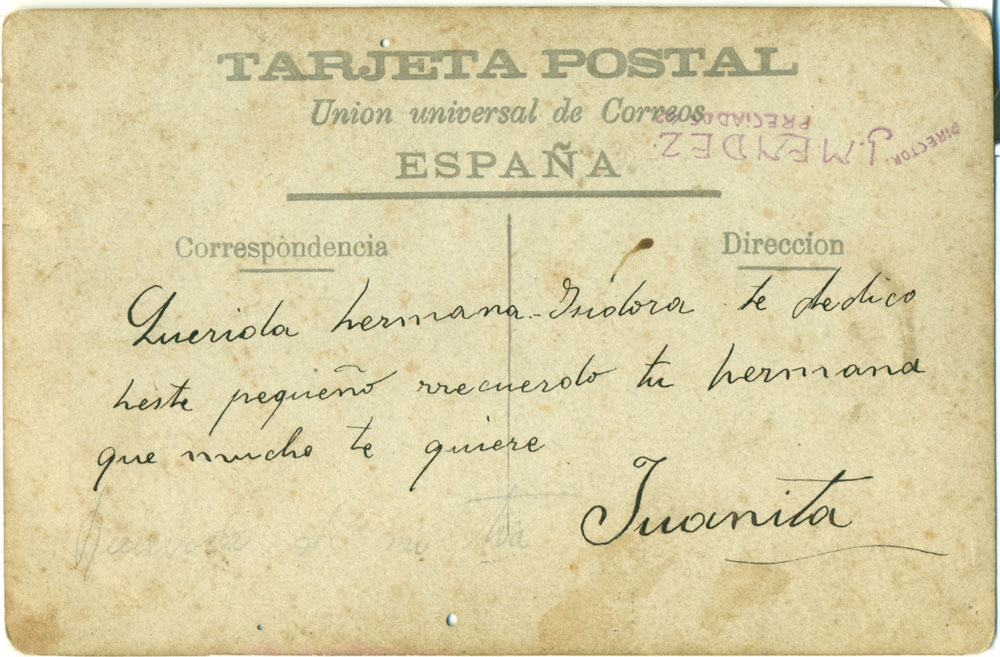 TARJETA POSTAL
Union universal de Correos
ESPAÑA
DIRECTOR. J. MENDEZ.
PRECIADOS
Correspondencia
Direccion
Querida hermana Isidora te dedico
heste pequeño rrecuerdo tu hermana
que mucho te quiere
Juanita
de mi tia